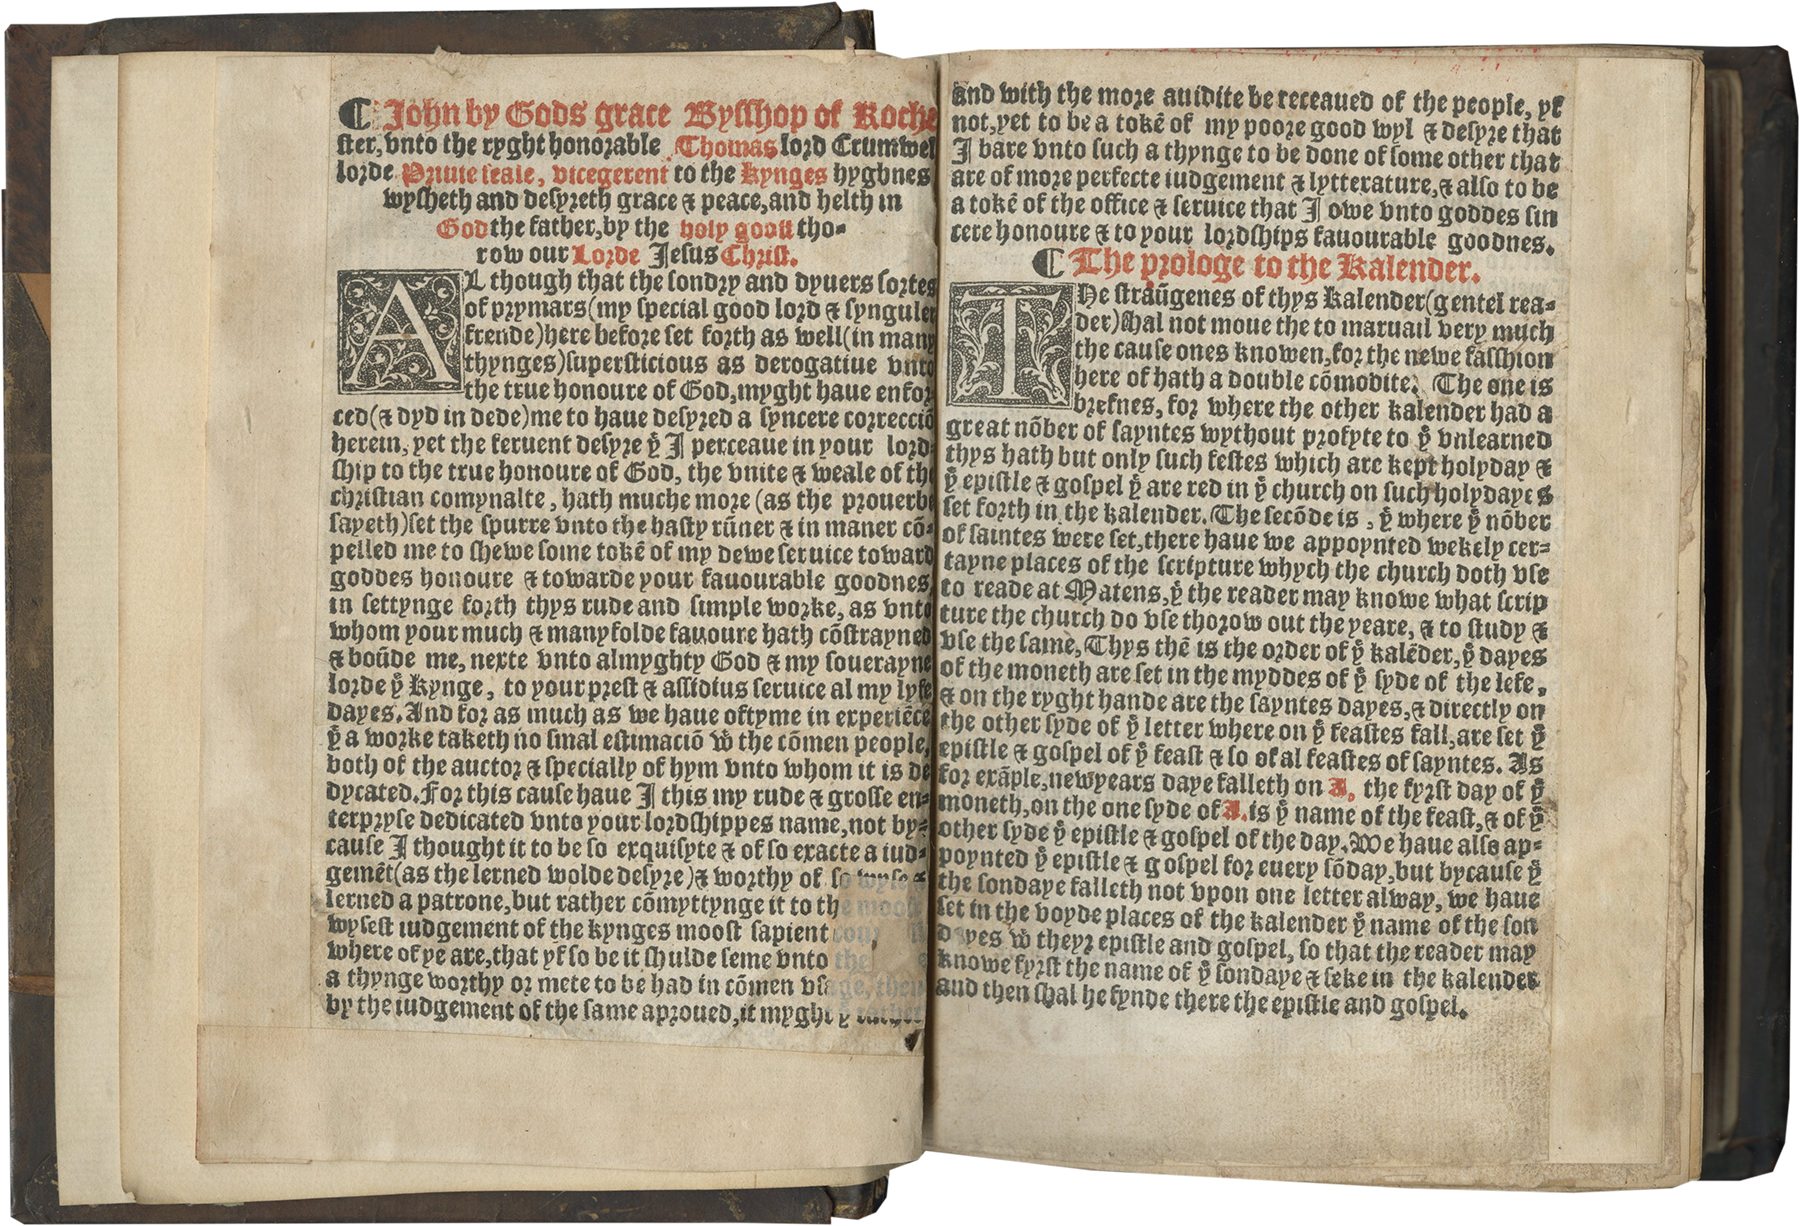 ¶ John by Gods grace Bysshop of Roche
ster, vnto the ryght honorable Thomas lord Crumwel
lorde Priuie seale, vicegerent to the kynges hyghnes
wysheth and desyreth grace & peace, and helth in
God the father, by the holy goost tho=
row our Lorde Jesus Christ.
AL though that the sondry and dyuers sortes
of prymars (my special good lord & synguler
frende) here before set forth as well (in many
thynges) supersticious as derogatiue vnto
the true honoure of God, myght haue enfor
ced (& dyd in dede) me to haue desyred a syncere correcciō
herein, yet the feruent desyre yͤ I perceaue in your lord
ship to the true honoure of God, the vnite & weale of the
christian comynalte, hath muche more (as the prouerbe
sayeth) set the spurre vnto the hasty rūner & in maner cō=
pelled me to shewe some tokē of my dewe seruice toward
goddes honoure & towarde your fauourable goodnes
in settynge forth thys rude and simple worke, as vnto
whom your much & manyfolde fauoure hath cōstrayned
& boūde me, nexte vnto almyghty God & my souerayne
lorde yͤ Kynge, to your prest & assidius seruice al my lyfe
dayes. And for as much as we haue oftyme in experiēce
yͭ a worke taketh no smal estimaciō wͭ the cōmen people,
both of the auctor & specially of hym vnto whom it is de
dycated. For this cause haue I this my rude & grosse en=
terpryse dedicated vnto your lordshippes name, not by=
cause I thought it to be so exquisyte & of so exacte a iud=
gemēt (as the lerned wolde desyre) & worthy of so wyse &
lerned a patrone, but rather cōmyttynge it to the moost
wysest iudgement of the kynges moost sapient
where of ye are, that yf so be it shulde seme vnto the
a thynge worthy or mete to be had in cōmen vsage, then
by the iudgement of the same aproued, it myght yͤ rather
and with the more auidite be receaued of the people, yf
not, yet to be a tokē of my poore good wyl & desyre that
I bare vnto such a thynge to be done of some other that
are of more perfecte iudgement & lytterature, & also to be
a tokē of the office & seruice that I owe vnto goddes sin
cere honoure & to your lordships fauourable goodnes.
¶ The prologe to the Kalender.
THe straūgenes of thys Kalender (gentel rea=
der) shal not moue the to maruail very much
the cause ones knowen, for the newe fasshion
here of hath a double cōmodite. The one is
brefnes, for where the other kalender had a
great nōber of sayntes wythout profyte to yͤ vnlearned
thys hath but only such festes which are kept holyday &
yͤ epistle & gospel yͭ are red in yͤ church on such holydayes
set forth in the kalender. The secōde is, yͭ where yͤ nōber
of saintes were set, there haue we appoynted wekely cer=
tayne places of the scripture whych the church doth vse
to reade at Matens, yͭ the reader may knowe what scrip
ture the church do vse thorow out the yeare, & to study &
vse the same, Thys thē is the order of yͤ kalēder, yͤ dayes
of the moneth are set in the myddes of yͤ syde of the lefe,
& on the ryght hande are the sayntes dayes, & directly on
the other syde of yͤ letter where on yͤ feastes fall, are set yͤ
epistle & gospel of yͤ feast & so of al feastes of sayntes. As
for exāple, newyears daye falleth on A, the fyrst day of yͤ
moneth, on the one syde of A. is yͤ name of the feast, & of yͤ
other syde yͤ epistle & gospel of the day. We haue also ap=
poynted yͤ epistle & gospel for euery sōday, but bycause yͤ
the sondaye falleth not vpon one letter alway, we haue
set in the voyde places of the kalender yͤ name of the son
dayes wͭ theyr epistle and gospel, so that the reader may
knowe fyrst the name of yͤ sondaye & seke in the kalender
and then shal he fynde there the epistle and gospel.